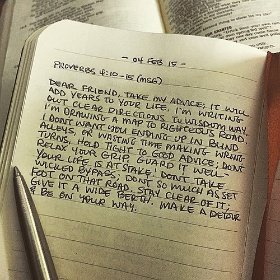 - 04 FEB 15 -
PROVERBS 4:10-15 (MSG)
DEAR FRIEND, TAKE MY ADVICE; IT WILL
ADD YEARS TO YOUR LIFE. I'M WRITING
OUT CLEAR DIRECTIONS TO WISDOM WAY,
I'M DRAWING A MAP TO RIGHTEOUS ROAD.
I DON'T WANT YOU ENDING UP IN BLIND
ALLEYS, OR WASTING TIME MAKING WRONG
TURNS. HOLD TIGHT TO GOOD ADVICE; DON'T
RELAX YOUR GRIP. GUARD IT WELL -
YOUR LIFE IS AT STAKE! DON'T TAKE
WICKED BYPASS; DON'T SO MUCH AS SET
FOOT ON THAT ROAD. STAY CLEAR OF IT;
GIVE IT A WIDE BERTH. MAKE A DETOUR
& BE ON YOUR WAY.